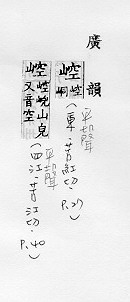 廣韻
崆 崆峒
平聲
(東 苦紅切 P.27)
崆 崆㟅山皃
又音空
平聲
(四江 苦江切 P.40)